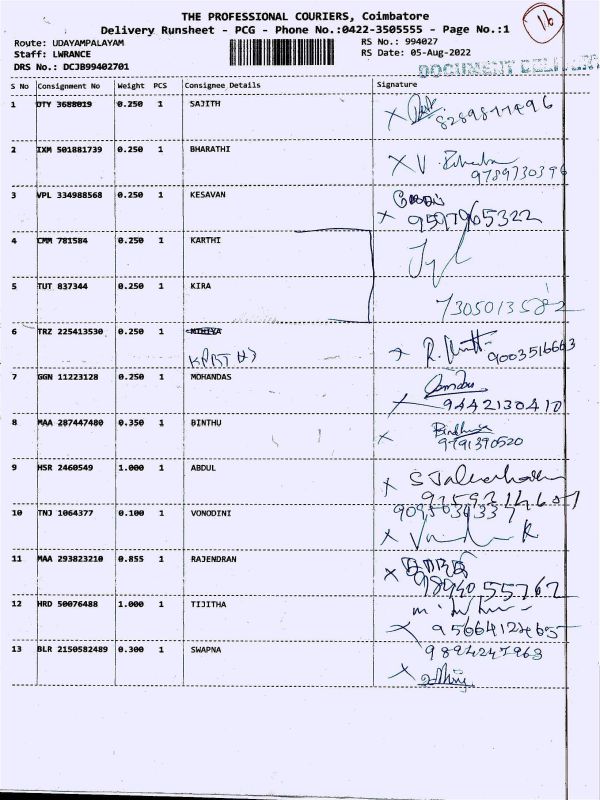 THE PROFESSIONAL COURIERS, Coimbatore
16
Delivery Runsheet - PCG - Phone No.:0422-3505555 - Page No.:1
Route: UDAYAMPALAYAM
RS No.: 994027
Staff: LWRANCE
RS Date: 05-Aug-2022
DRS No.: DCJB99402701
DOCUMENT DELIVERY
S No Consignment No Weight PCS Consignee Details Signature
1 DTY 3688019 0.250 1 SAJITH
2 IXM 501881739 0.250 1 BHARATHI
9789730396
3 VPL 334988568 0.250 1 KESAVAN
9597965322
4 CMM 781584 0.250 1 KARTHI
5 TUT 837344 0.250 1 KIRA
7305013582
6 TRZ 225413530 0.250 1 MITHYA
9003516663
7 GGN 11223128 0.250 1 MOHANDAS
9442130410
8 MAA 287447480 0.350 1 BINTHU
9791390520
9 HSR 2460549 1.000 1 ABDUL
10 TNJ 1064377 0.100 1 VONODINI
11 MAA 293823210 0.855 1 RAJENDRAN
9894055762
12 HRD 50076488 1.000 1 TIJITHA
13 BLR 2150582489 0.300 1 SWAPNA
9894247963